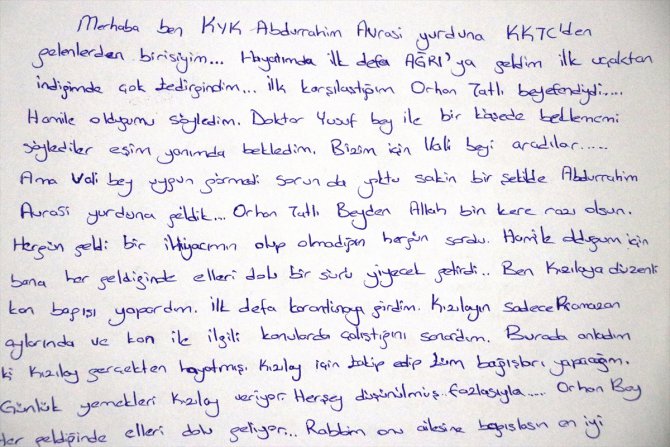 Merhaba ben KYK Abdurrahim Avrasi yurduna KKTC'den
gelenlerden birisiyim... Hayatımda ilk defa AĞRI'ya geldim ilk uçaktan
indiğimde çok tedirgindim... ilk karşılaştığım Orhan Tatlı beyefendiydi....
Hamile olduğumu söyledim. Doktor Yusuf bey ile bir köşede beklememi
söylediler eşim yanımda bekledim. Bizim için Vali beyi aradılar......
Ama Vali bey uygun görmedi sorun da yoktu sakin bir şekilde Abdurrahim
Avrasi yurduna geldik... Orhan Tatlı Beyden Allah bin kere razı olsun.
Hergün geldi bir ihtiyacımın olup olmadığını hergün sordu. Hamile olduğum için
bana her geldiğinde elleri dolu bir sürü yiyecek getirdi.. Ben Kızılaya düzenli
kan bağışı yapardım. İlk defa karantinaya girdim. Kızılayın sadece Ramazan
aylarında ve kan ile ilgili konularda çalıştığını sanardım. Burada anladım
ki Kızılay gerçekten hayatmış. Kızılay için takip edip tüm bağışları yapacağım.
Günlük yemekleri Kızılay veriyor. Herşey düşünülmüş fazlasıyla..... Orhan Bey
Her geldiğinde elleri dolu geliyor... Rabbim onu ailesine bağışlasın en iyi